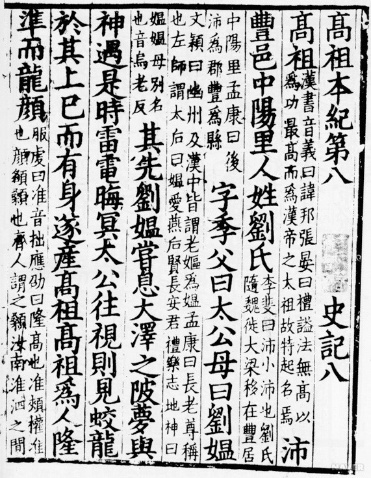 髙祖本紀第八 史記八
髙祖漢書音義曰諱邦張晏曰禮謚法無髙以爲功最髙而爲漢帝之太祖故特起名焉沛
豐邑中陽里人姓劉氏李斐曰沛小沛也劉氏隨魏徙大梁移在豐居
中陽里孟康曰後沛爲郡豐爲縣字季父曰太公母曰劉媼
文穎曰幽州及漢中皆謂老嫗爲媼孟康曰長老尊稱也左師謂太后曰媼愛燕后賢長安君禮樂志地神曰
媼媼母別名也音烏老反其先劉媼甞息大澤之陂夢與
神遇是時雷電晦冥太公往視則見蛟龍
於其上已而有身遂產髙祖髙祖爲人隆
準而龍顔服虔曰准音拙應劭曰隆髙也准頰權准也顔頟顙也齊人謂之顙汝南淮泗之間